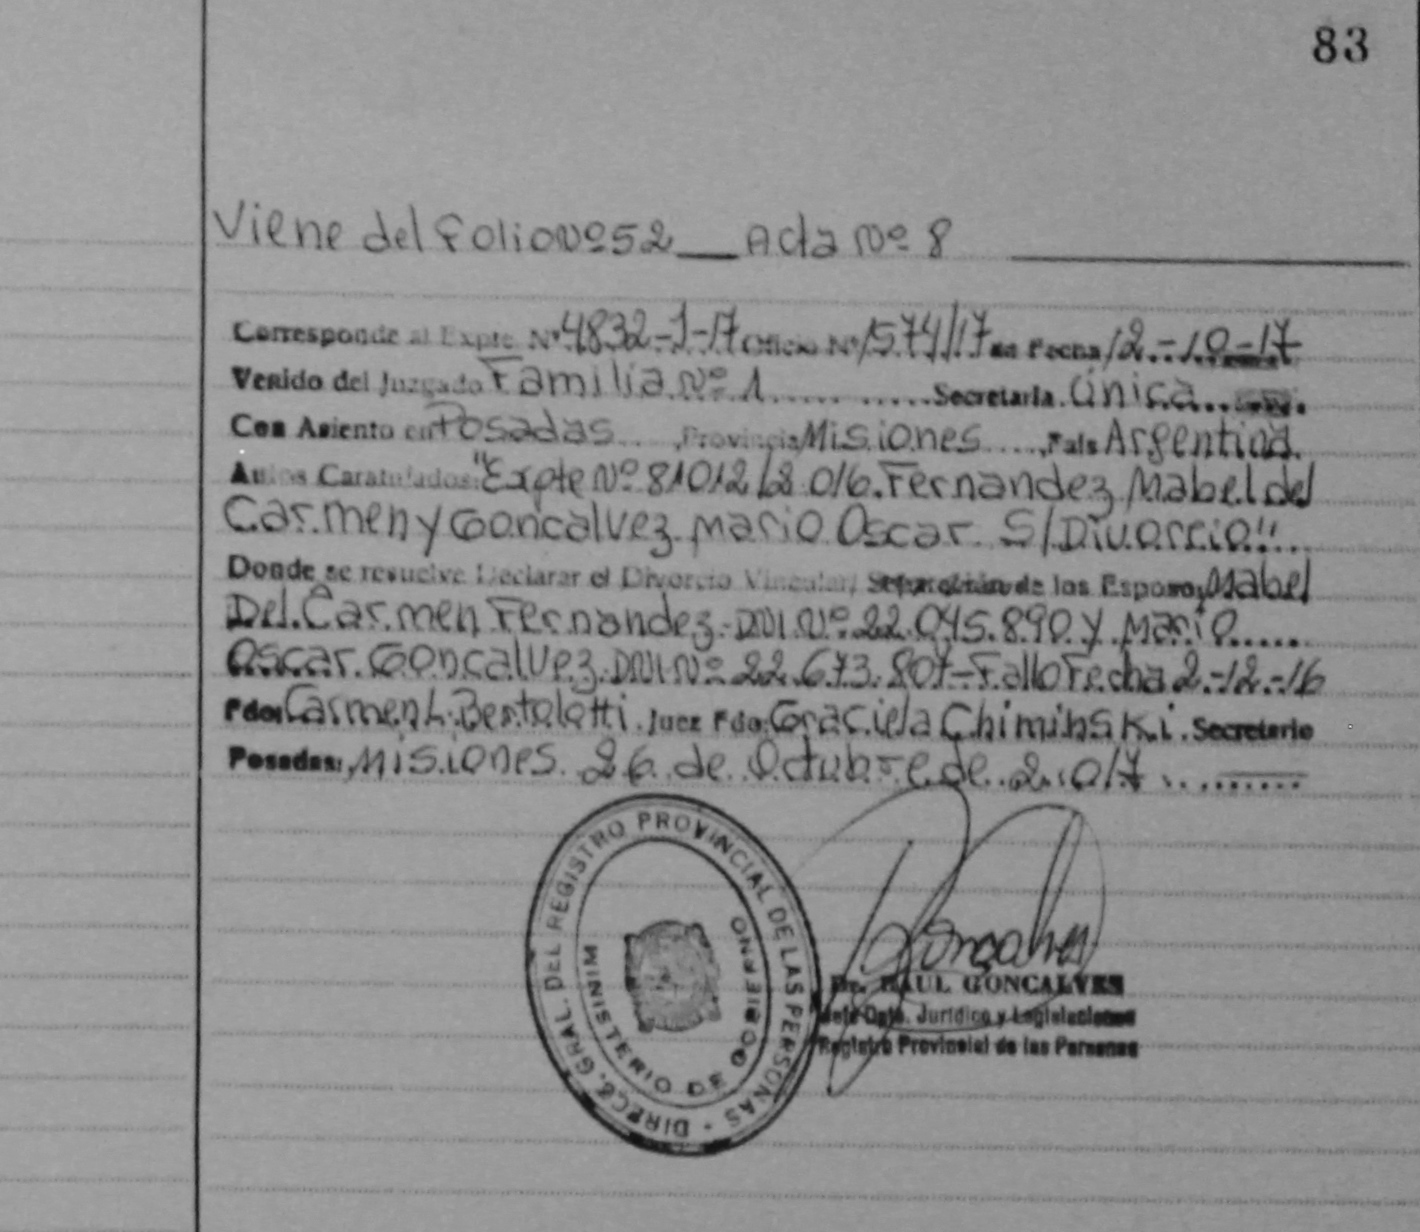 83
Viene del Folio Nº 52 __ Acta Nº 8
Corresponde al Expte. Nº 4832-J-17 Oficio Nº 1574/17 de Fecha 12.-10-17
Venido del Juzgado Familia Nº 1 ........... Secretaria Única....
Con Asiento en Posadas ..... Provincia Misiones ..... País Argentina.
Autos Caratulados: "Expte Nº 81012/2.016. Fernandez Mabel del
Carmen y Goncalvez Mario Oscar S/Divorcio"...
Donde se resuelve Declarar el Divorcio Vincular/ Separación de los Esposos Mabel
Del Carmen Fernandez-DNI.Nº 22.045.890 y Mario.....
Oscar Goncalvez-DNI Nº 22.673.807-Fallo Fecha 2.-12.-16
Fdo: Carmen L. Bertolotti. Juez Fdo: Graciela Chiminski. Secretario
Posadas: Misiones 26 de Octubre de 2.017 ..........
DIREC. GRAL. DEL REGISTRO PROVINCIAL DE LAS PERSONAS
MINISTERIO DE GOBIERNO
Goncalves
Dr. RAUL GONCALVES
Jefe Dpto. Jurídico y Legislaciones
Registro Provincial de las Personas